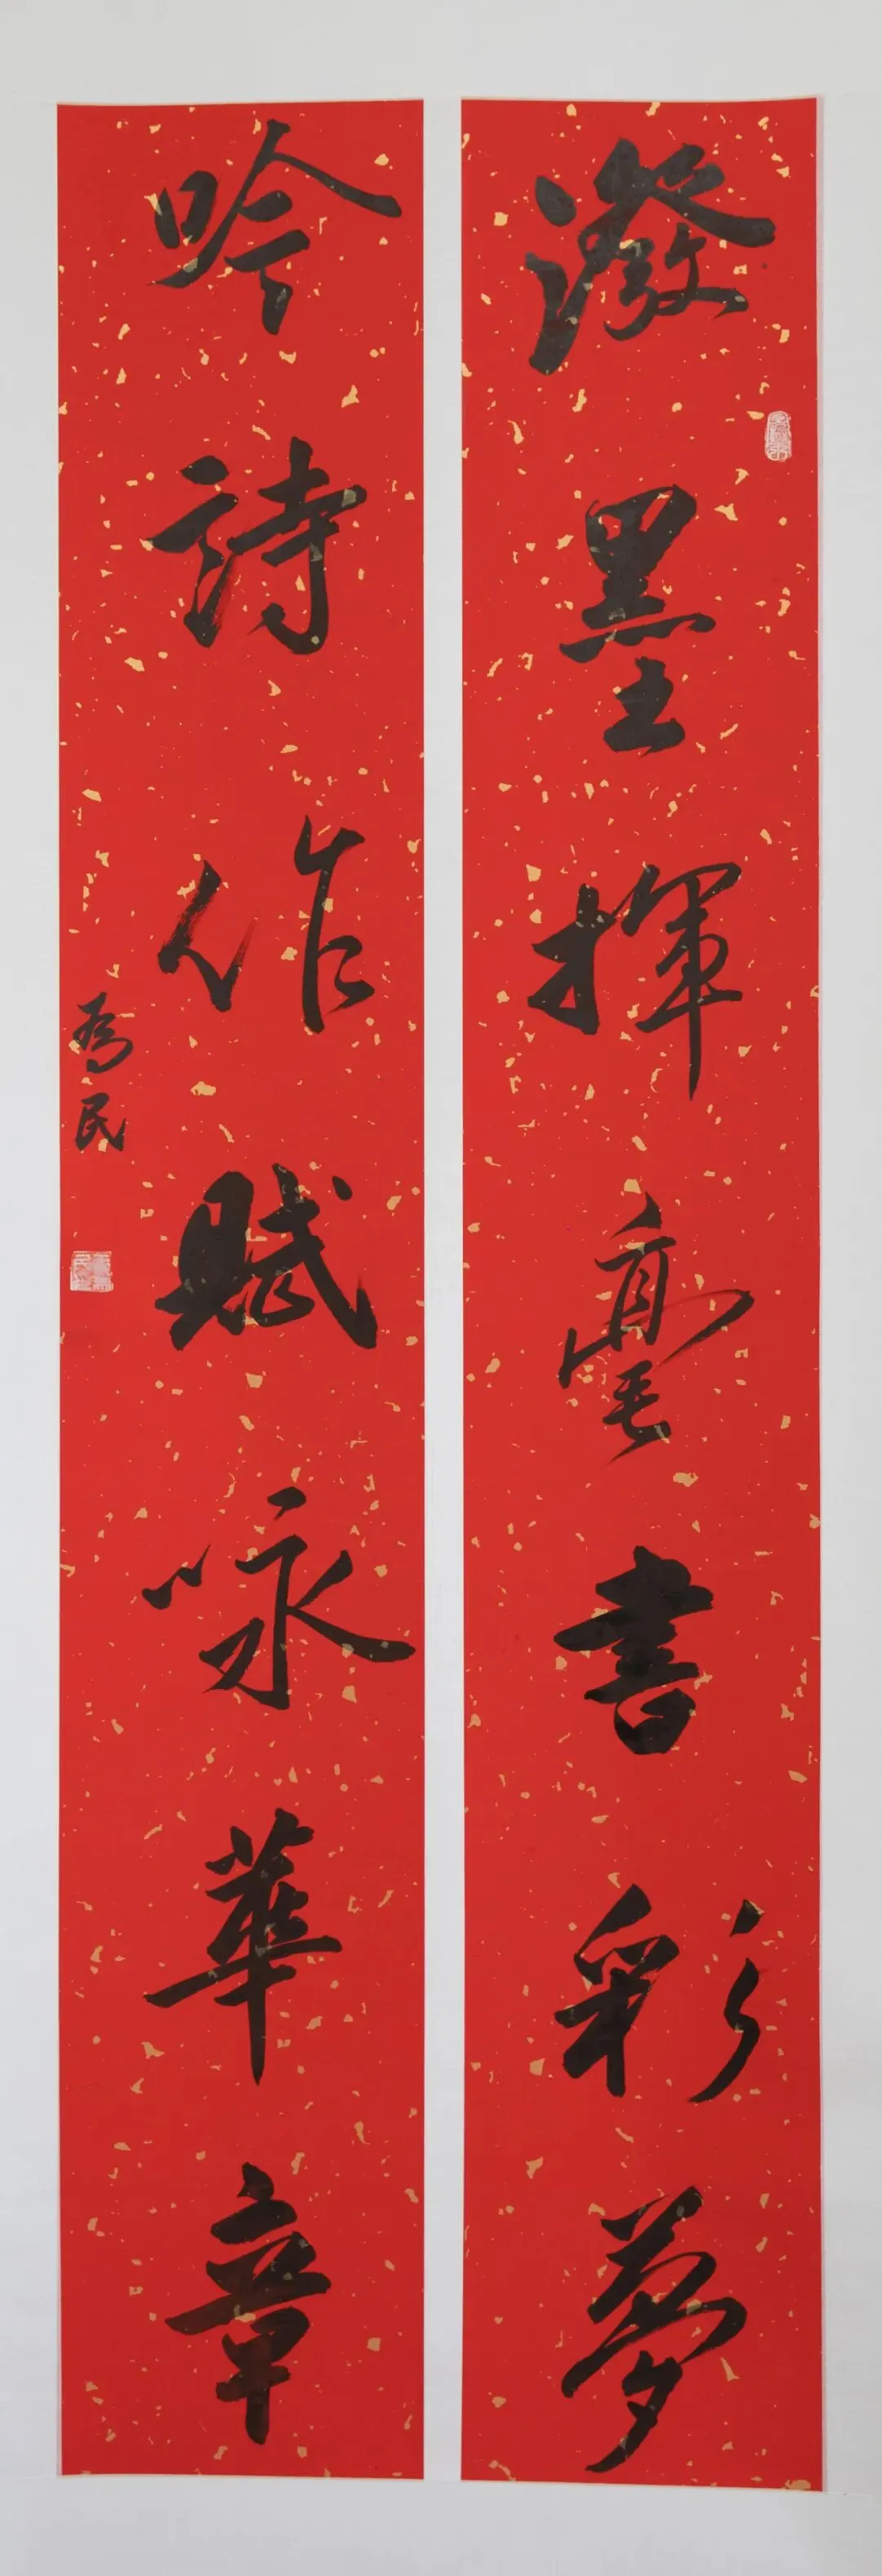 潑墨揮毫書彩夢
吟詩作賦咏華章
為民